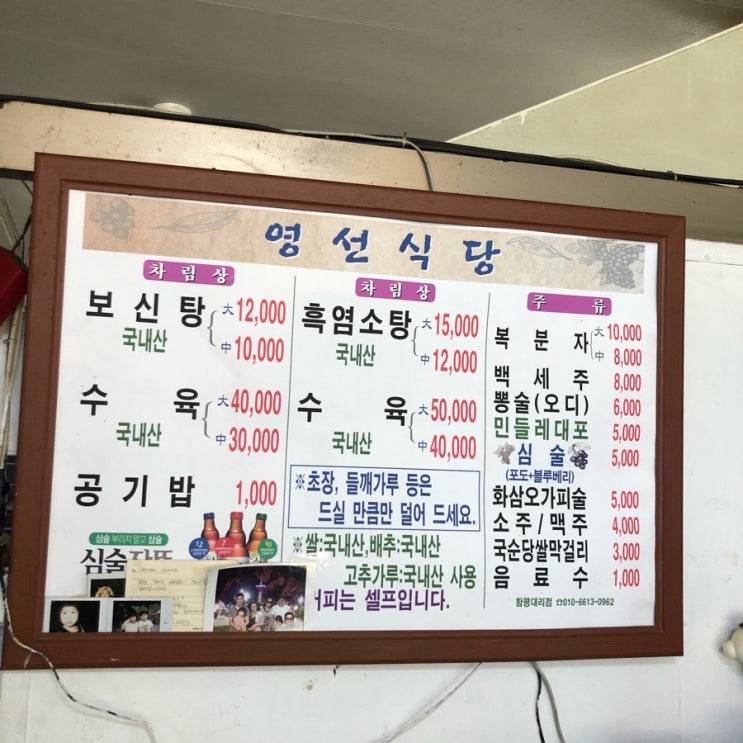 영선식당
차림상
보신탕 大 12,000
국내산 中 10,000
수육 大 40,000
국내산 中 30,000
공기밥 1,000
심술 부리지 말고 심술
12
7
10
차림상
흑염소탕 大 15,000
국내산 中 12,000
수육 大 50,000
국내산 中 40,000
※초장, 들깨가루 등은
드실 만큼만 덜어 드세요.
※쌀:국내산,배추:국내산
고추가루:국내산 사용
커피는 셀프입니다.
주류
복분자 大 10,000
中 8,000
백세주 8,000
뽕술(오디) 6,000
민들레대포 5,000
심술 5,000
(포도+블루베리)
화삼오가피술 5,000
소주/맥주 4,000
국순당쌀막걸리 3,000
음료수 1,000
함평대리점 ☎010-6613-0962